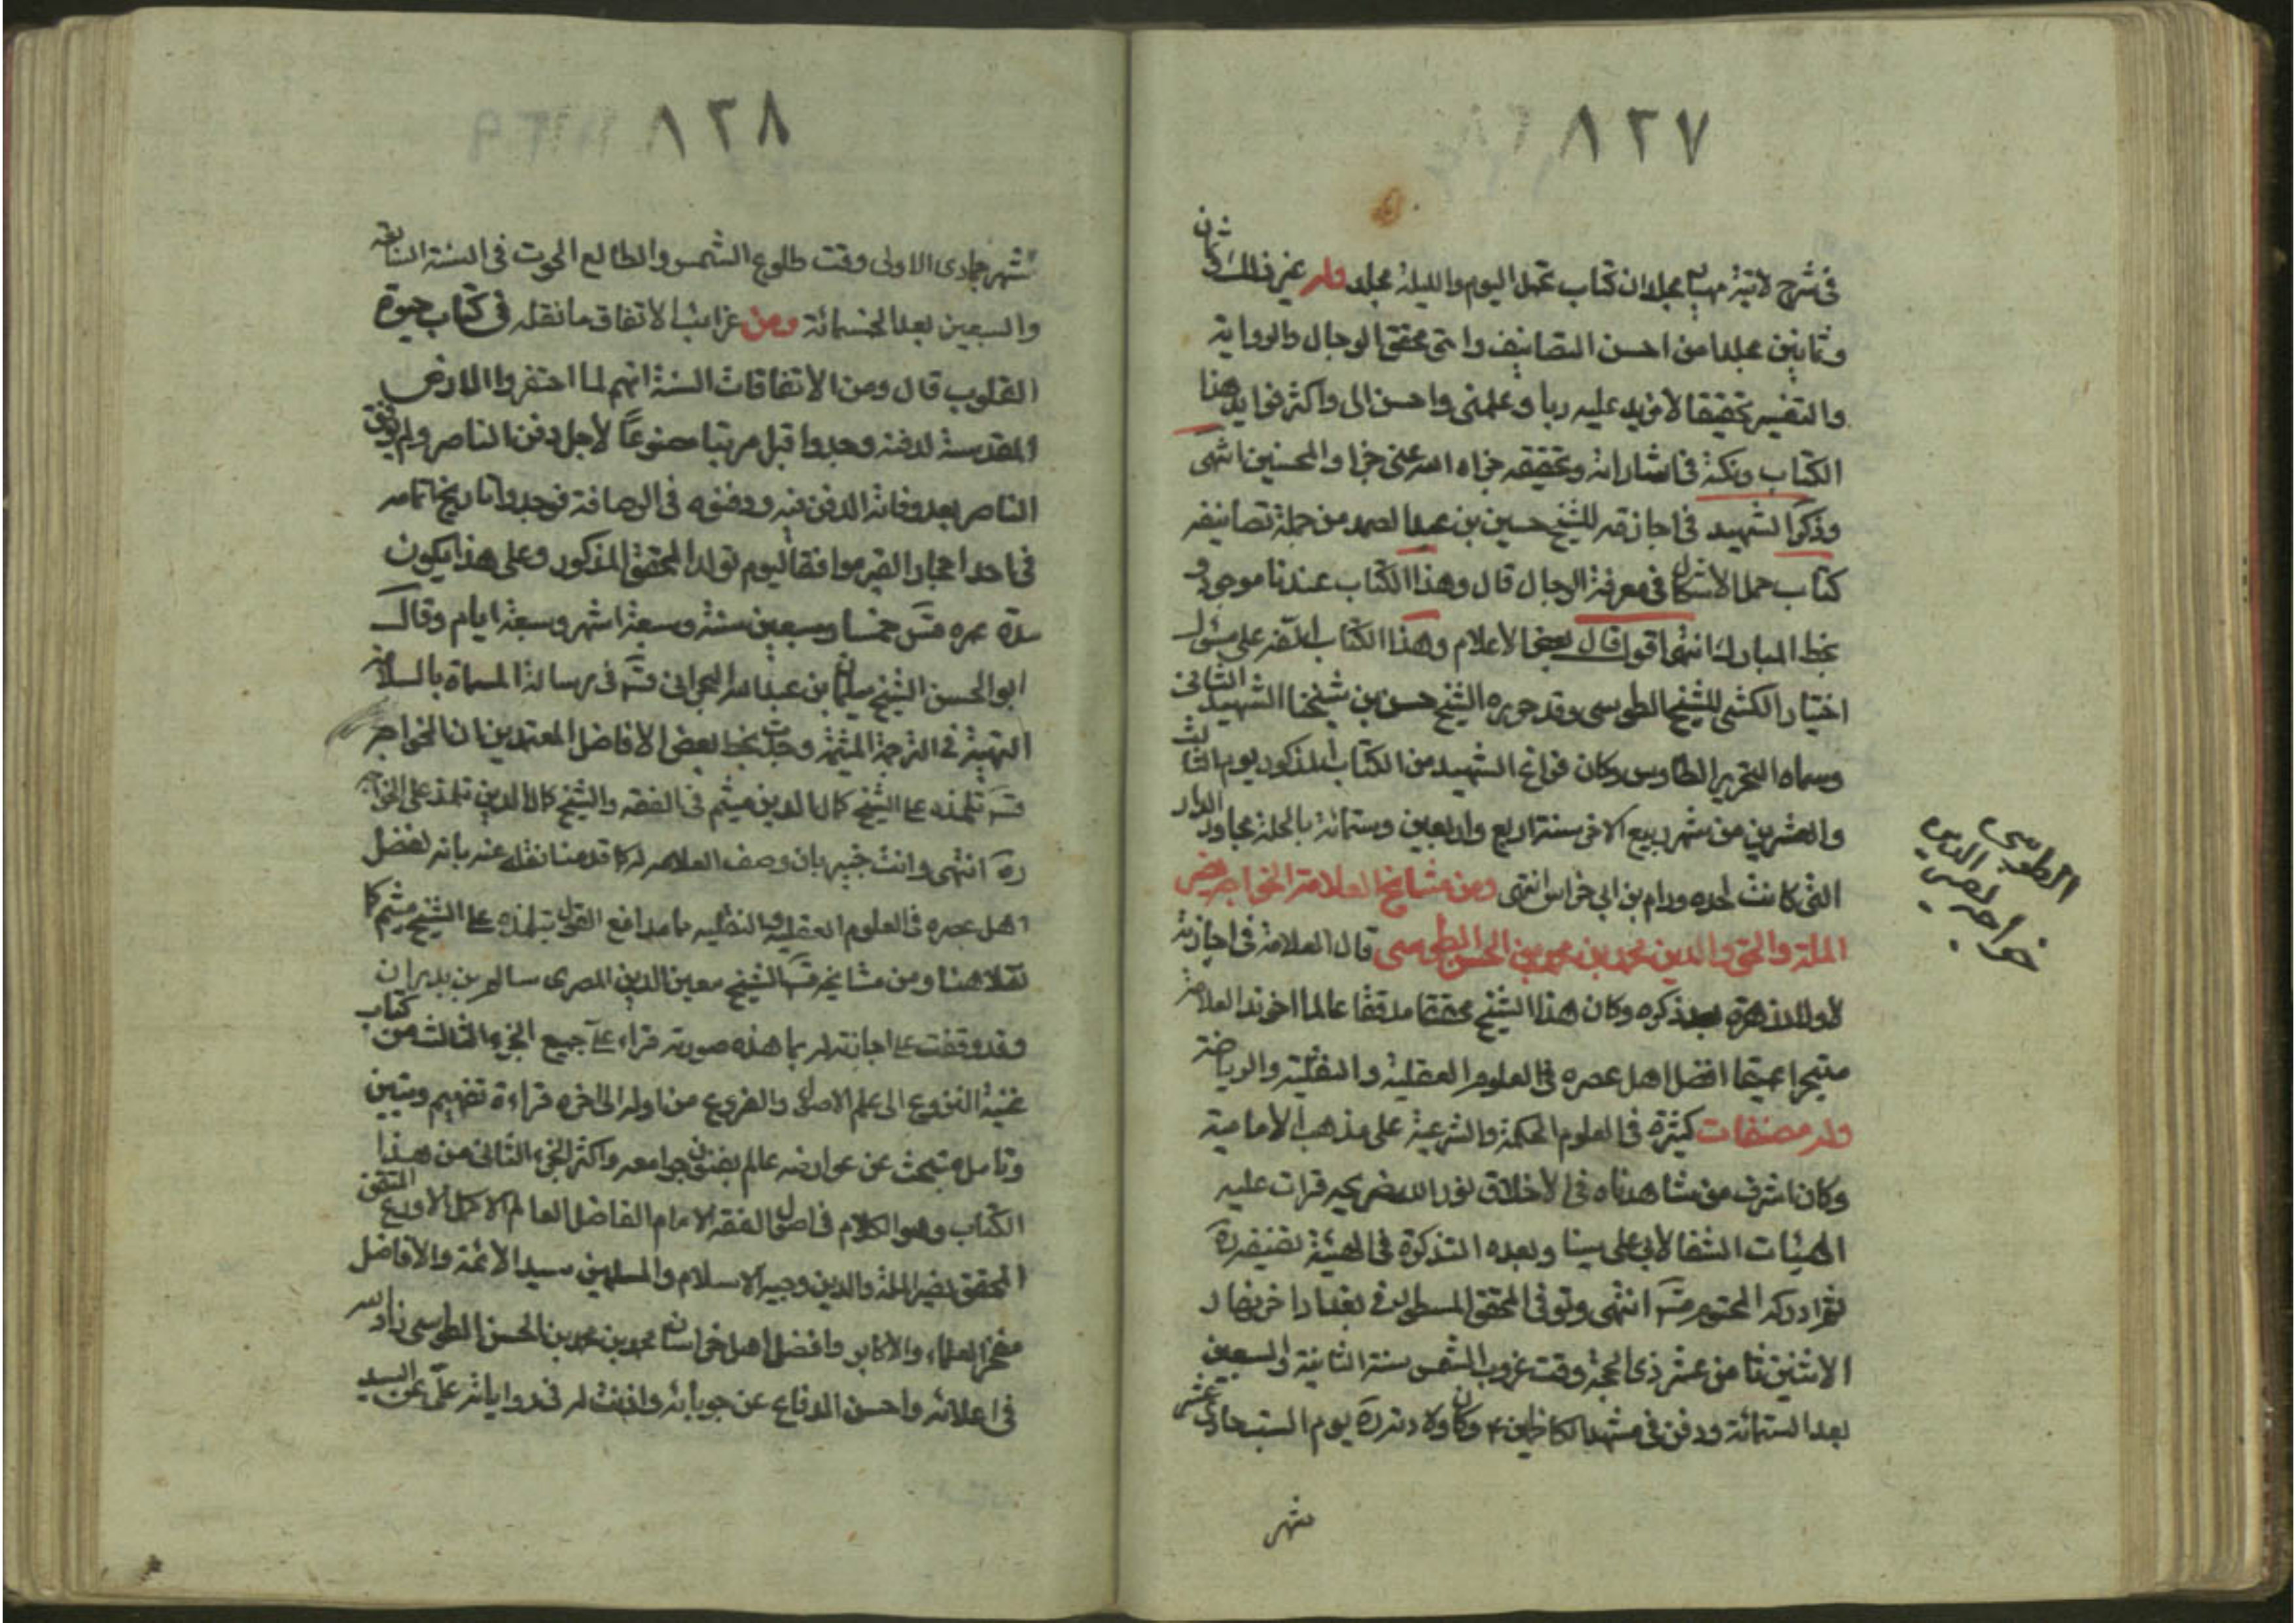 ٨٢٧
فى شرح لامية مهيار مجلدان كتاب عمل اليوم والليلة مجلد وله غير ذلك كان
وثمانين مجلدا من احسن التصانيف واحق محقق الرجال والرواية
والتفسير تحقيقا لا مزيد عليه ربانى وعلمنى واحسن الى واكثر فوايد هذا
الكتاب ونكته فى اشاراته وتحقيقه جزاه الله عنى جزاء المحسنين انتهى
وذكر الشهيد فى اجازته للشيخ حسين بن عبد الصمد من جملة تصانيفه
كتاب حل الاشكال فى معرفة الرجال قال وهذا الكتاب عندنا موجود
بخط المبارك انتهى اقول قال بعض الاعلام وهذا الكتاب
اختيار الكشى للشيخ الطوسى وقد حرره الشيخ حسن بن شيخنا الشهيد الثانى
وسماه التحرير الطاوسى وكان فراغ السيد من الكتاب المذكور يوم الثالث
والعشرين من شهر ربيع الاخر سنة اربع واربعين وستمائة بالحلة مجاور الدار
التى كانت لجده ورام بن ابى فراس انتهى ومن مشايخ العلامة الخواجه نصير
الملة والحق والدين محمد بن محمد بن الحسن الطوسى قال العلامة فى اجازته
لاولاد زهرة بعد ذكره وكان هذا الشيخ محققا مدققا عالما
افضل اهل عصره فى العلوم العقلية والنقلية والرياضة
وله مصنفات كثيرة فى العلوم الحكمة والشرعية على مذهب الأمامية
وكان اشرف من شاهدناه فى الأخلاق نور الله ضريحه قرات عليه
الهيئات الشفا لأبى على سينا وبعده التذكرة فى الهيئة تصنيفه ره
ثم ادركه المحتوم قده انتهى وتوفى المحقق المسطور فى بغداد اخر نهار
الاثنين ثامن عشر ذى الحجة وقت غروب الشمس سنة الثانية والسبعين
بعد الستمائة ودفن فى مشهد الكاظمين ع وكان ولادته ره يوم السبت حادى عشر
شهر
الطوسى
نصير الدين
خواجه
٨٢٨
شهر جمادى الاولى وقت طلوع الشمس والطالع الحوت فى السنة السابعة
والسبعين بعد الخمسمائة ومن غرائب الاتفاق ما نقله فى كتاب حيوة
القلوب قال ومن الاتفاقات السنة انهم لما احتفروا الارض
المقدسة لدفنه وجدوا قبل مرتبا مصنوعًا لأجل دفن الناصر ولم يوفق
الناصر بعد وفاته الدفن فيه ودفنوه فى الرصافة فوجدوا تاريخ اتمامه
فى احد احجار القبر موافقا ليوم تولد المحقق المذكور وعلى هذا يكون
مدة عمره قده خمسا وسبعين سنة وسبعة اشهر وسبعة ايام وقال
ابو الحسن الشيخ سليمان بن عبد الله البحرانى قده فى رسالة المسماة بالسلافة
البهية فى الترجمة الميثمية وجدت بخط بعض الافاضل المعتمدين ان الخواجه
قده تلمذه على الشيخ كمال الدين ميثم فى الفقه والشيخ كمال الدين تلمذ على الخواجه
ره انتهى وانت خبير بان وصف العلامه له كما قدمنا نقله عنه بانه افضل
اهل عصره فى العلوم العقلية والنقليه مما يدافع القول بتلمذه على الشيخ ميثم كما
نقلاه هنا ومن مشايخه قده الشيخ معين الدين المصرى سالم بن بدران
وقد وقفت على اجازته له بما هذه صورته قراء على جميع الجزء الثالث من كتاب
غنية النزوع الى علم الاصول والفروع من اوله الى اخره قراءة تفهيم وتبيين
وتامل مبتحث عن غوامضه عالم بفنون جوامعه واكثر الجزء الثانى من هذا
الكتاب وهو الكلام فى اصول الفقه الامام الفاضل العالم الاكمل الأورع المتقن
المحقق نصير الملة والدين وجيه الاسلام والمسلمين سيد الأئمة والأفاضل
مفخر العلماء والاكابر وافضل اهل خراسان محمد بن محمد بن الحسن الطوسى زاد الله
فى اعلائه واحسن الدفاع عن حوبائه واذنت له فى رواياته عنى عن السيد